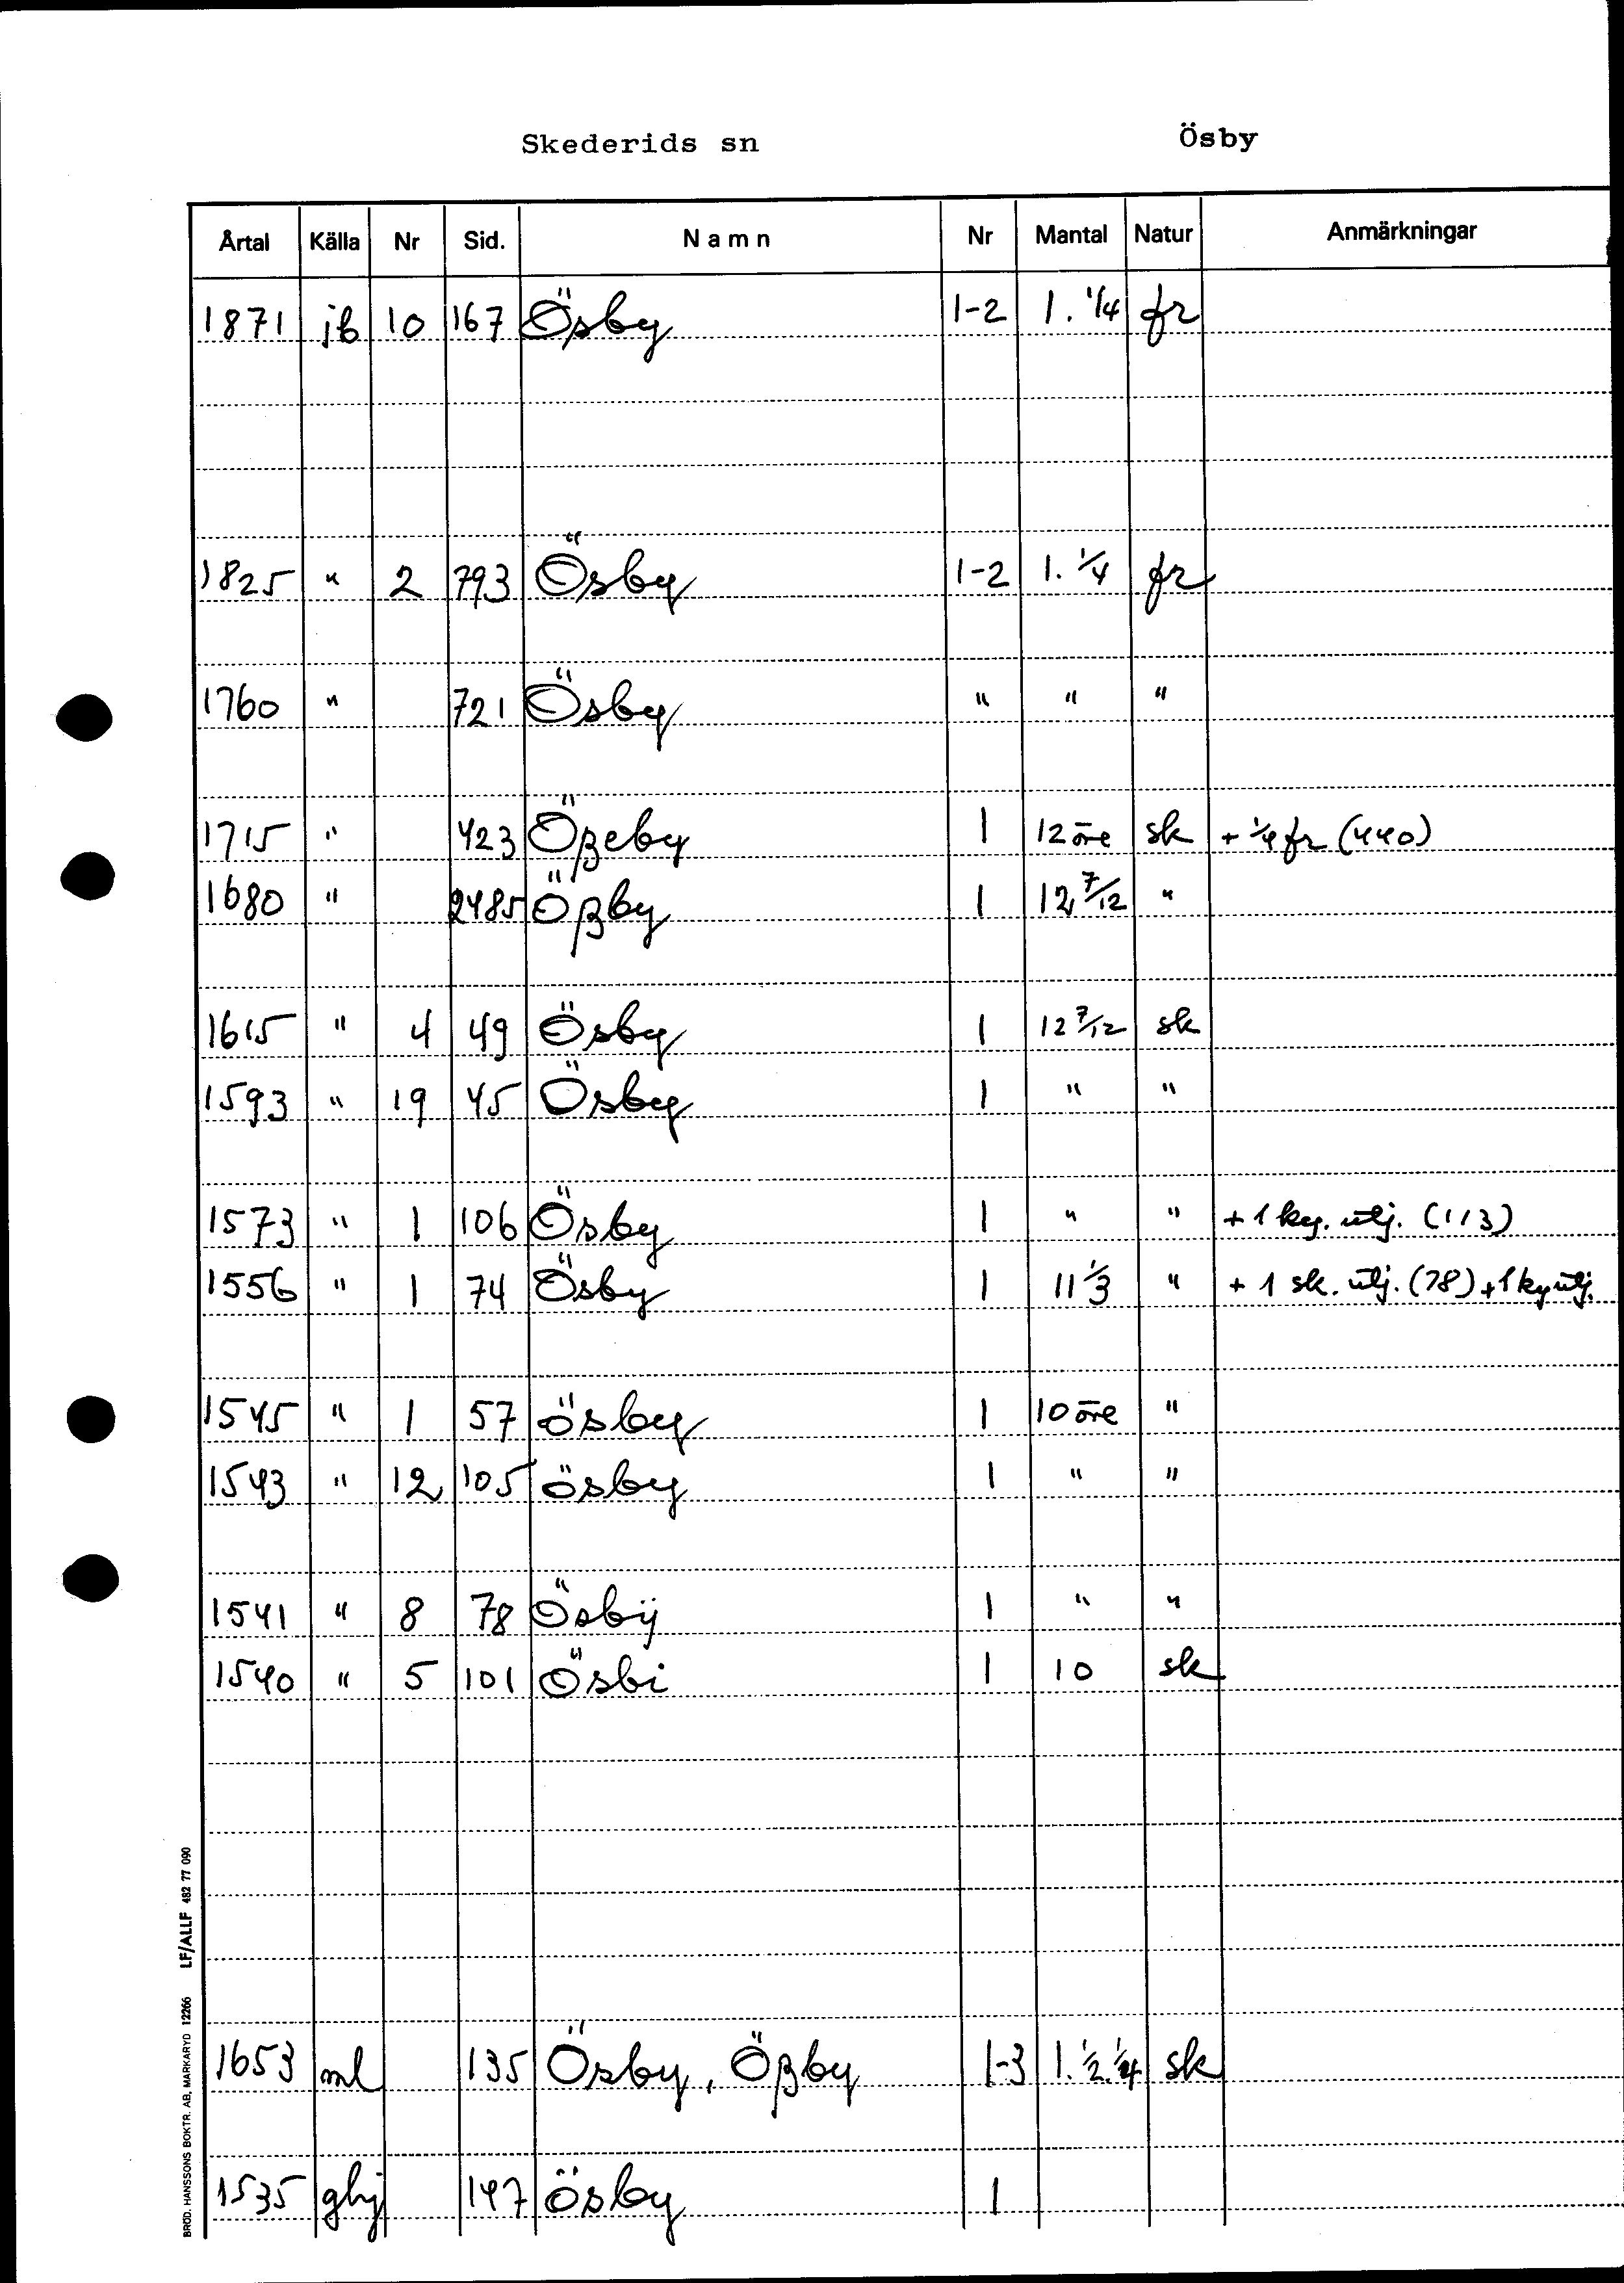 Skederids sn Ösby
Årtal Källa Nr Sid. Namn Nr Mantal Natur Anmärkningar
1871 jb 10 167 Ösby 1-2 1. 1/4 fr
1825 " 2 793 Ösby 1-2 1. 1/4 fr
1760 " 721 Ösby " " "
1715 " 423 Ößeby 1 12 öre sk + 1/4 fr (440)
1680 " 2485 Ößby 1 12 7/12 "
1615 " 4 49 Ösby 1 12 7/12 sk
1593 " 19 45 Ösby 1 " "
1573 " 1 106 Ösby 1 " " + 1 ky. utj. (113)
1556 " 1 74 Ösby 1 11 1/3 " + 1 sk. utj. (78) + 1 ky utj.
1545 " 1 57 ösby 1 10 öre "
1543 " 12 105 ösby 1 " "
1541 " 8 78 Ösbÿ 1 " "
1540 " 5 101 Ösbi 1 10 sk
1653 ml 135 Ösby, Ößby 1-3 1. 1/2. 1/4 sk
1535 ghj 147 ösby 1
BRÖD. HANSSONS BOKTR. AB, MARKARYD 12266 LF/ALLF 482 77 090